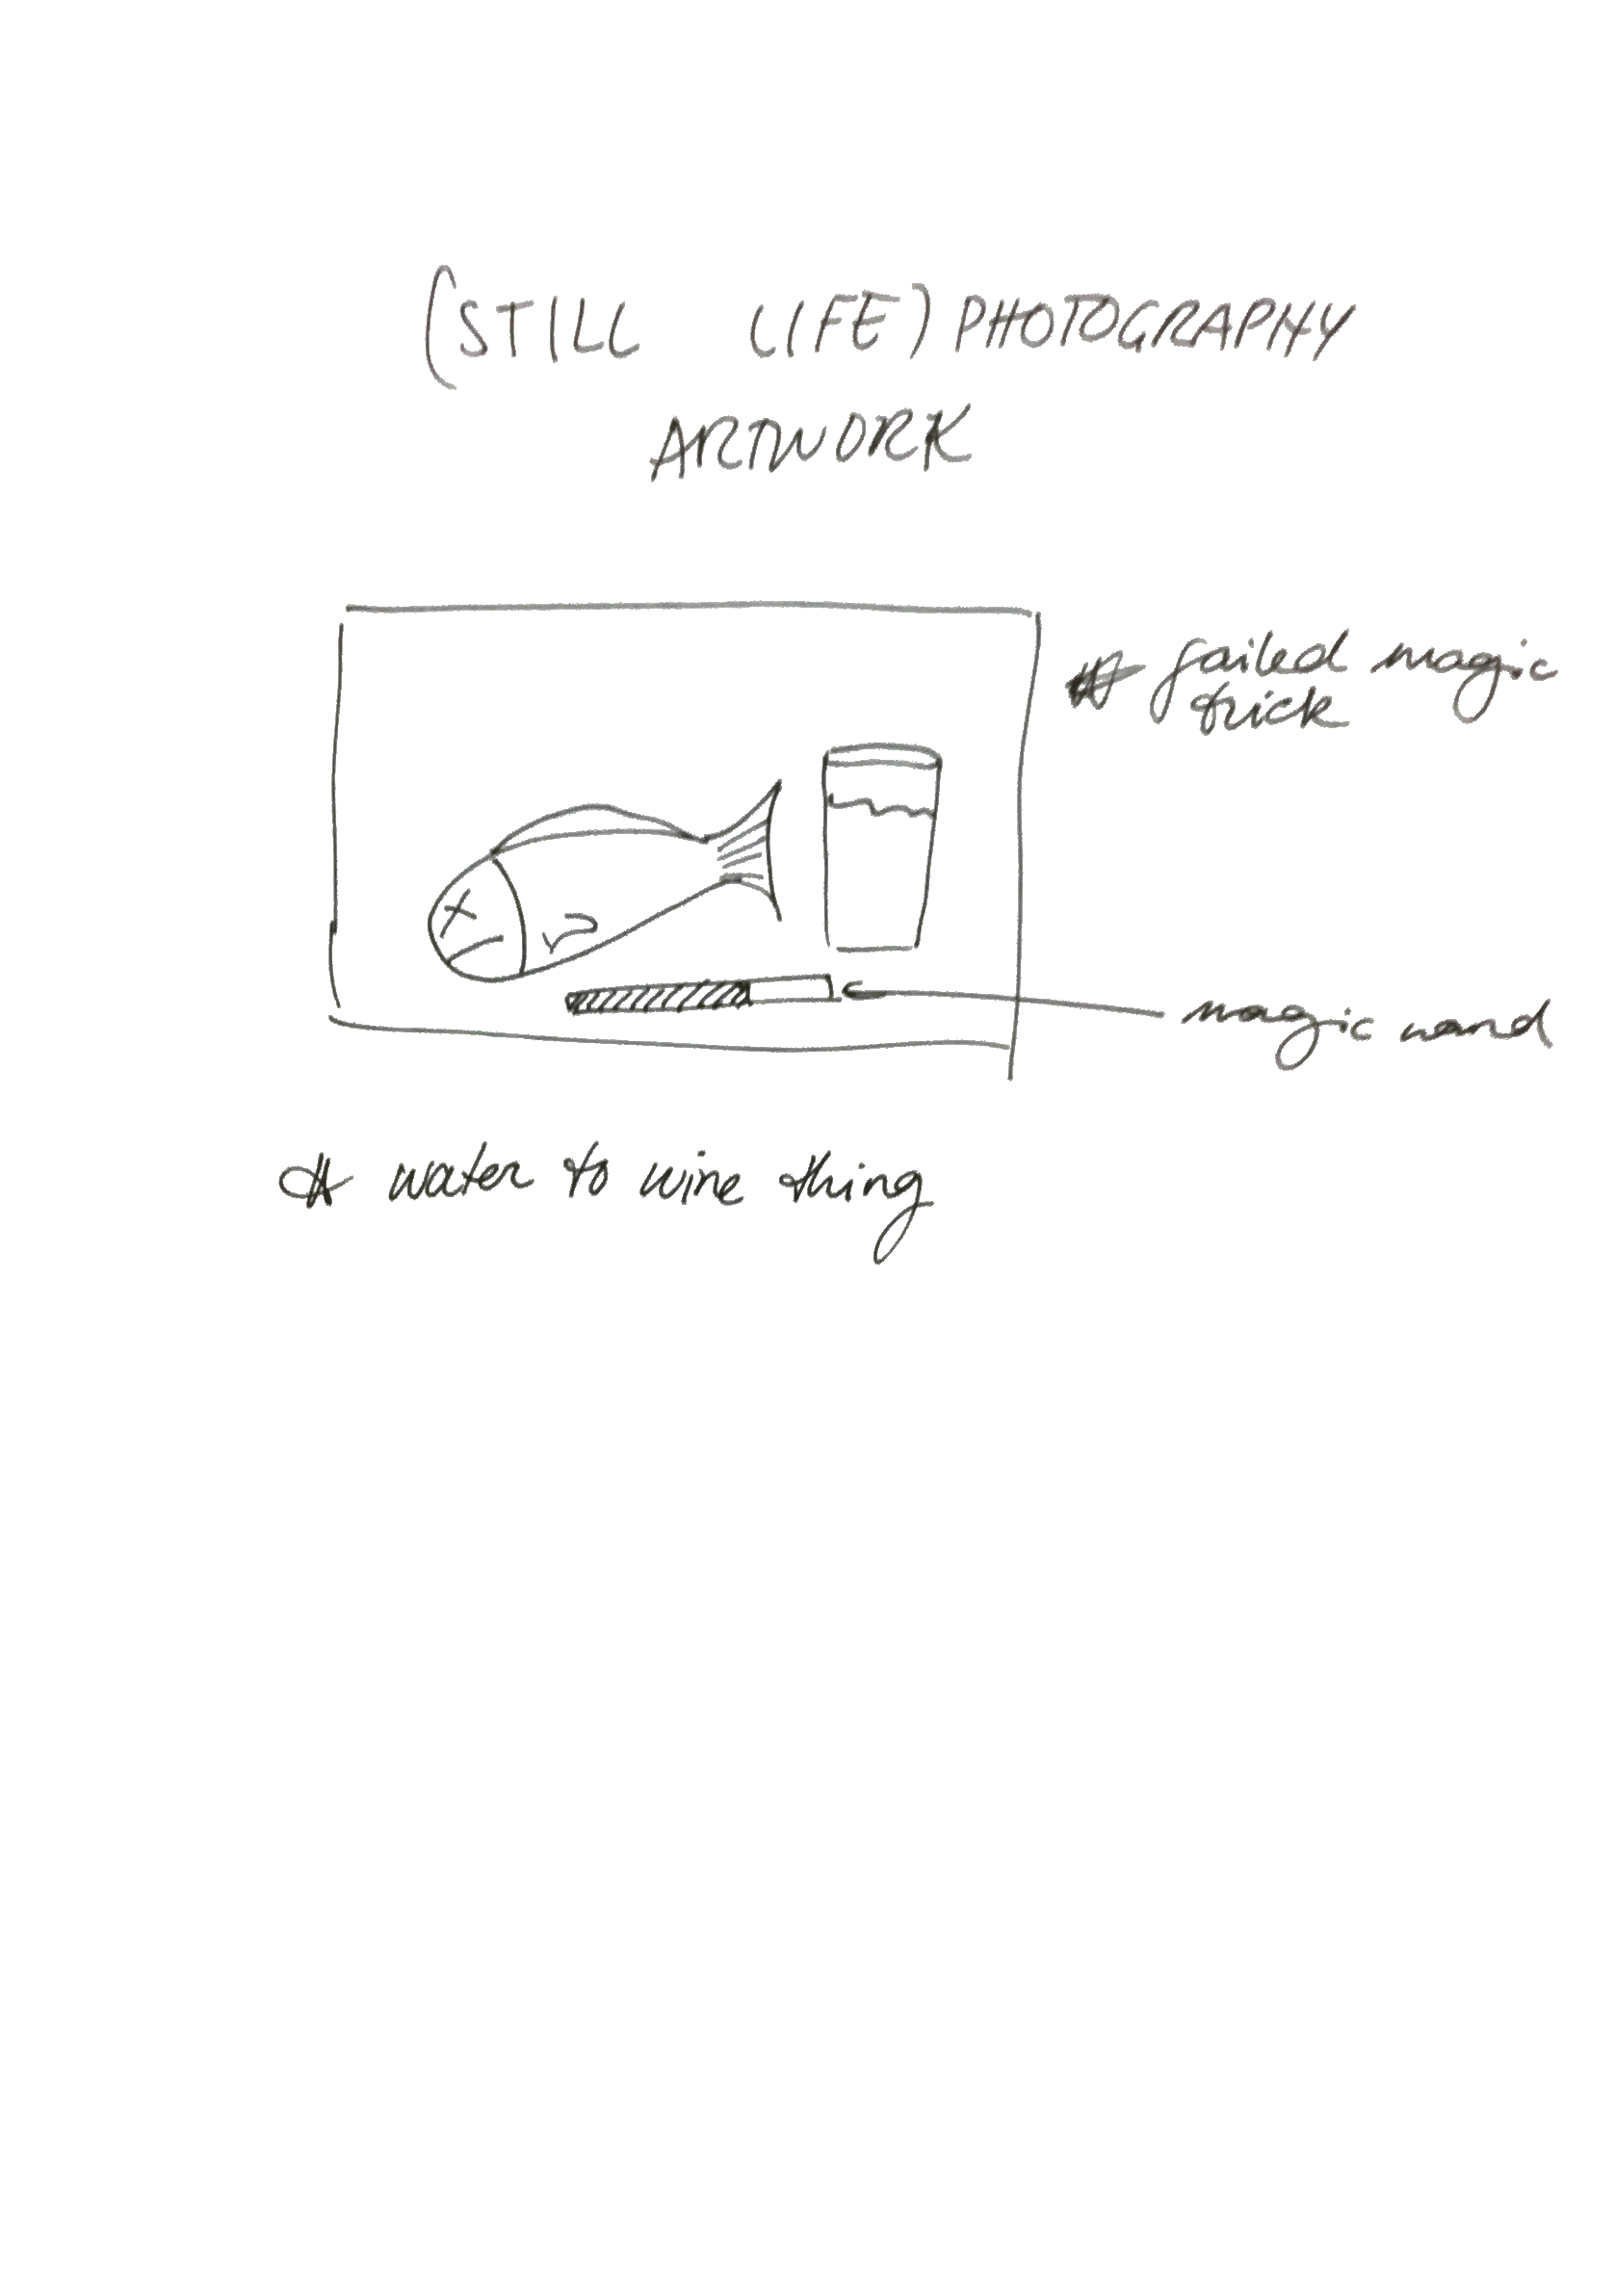 (STILL LIFE) PHOTOGRAPHY
ARTWORK
* failed magic
trick
magic wand
* water to wine thing